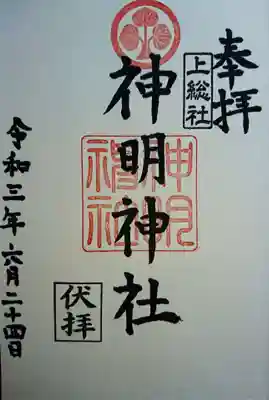 奉拝
上総社
神明神社
神明神社
伏拝
令和三年六月二十四日